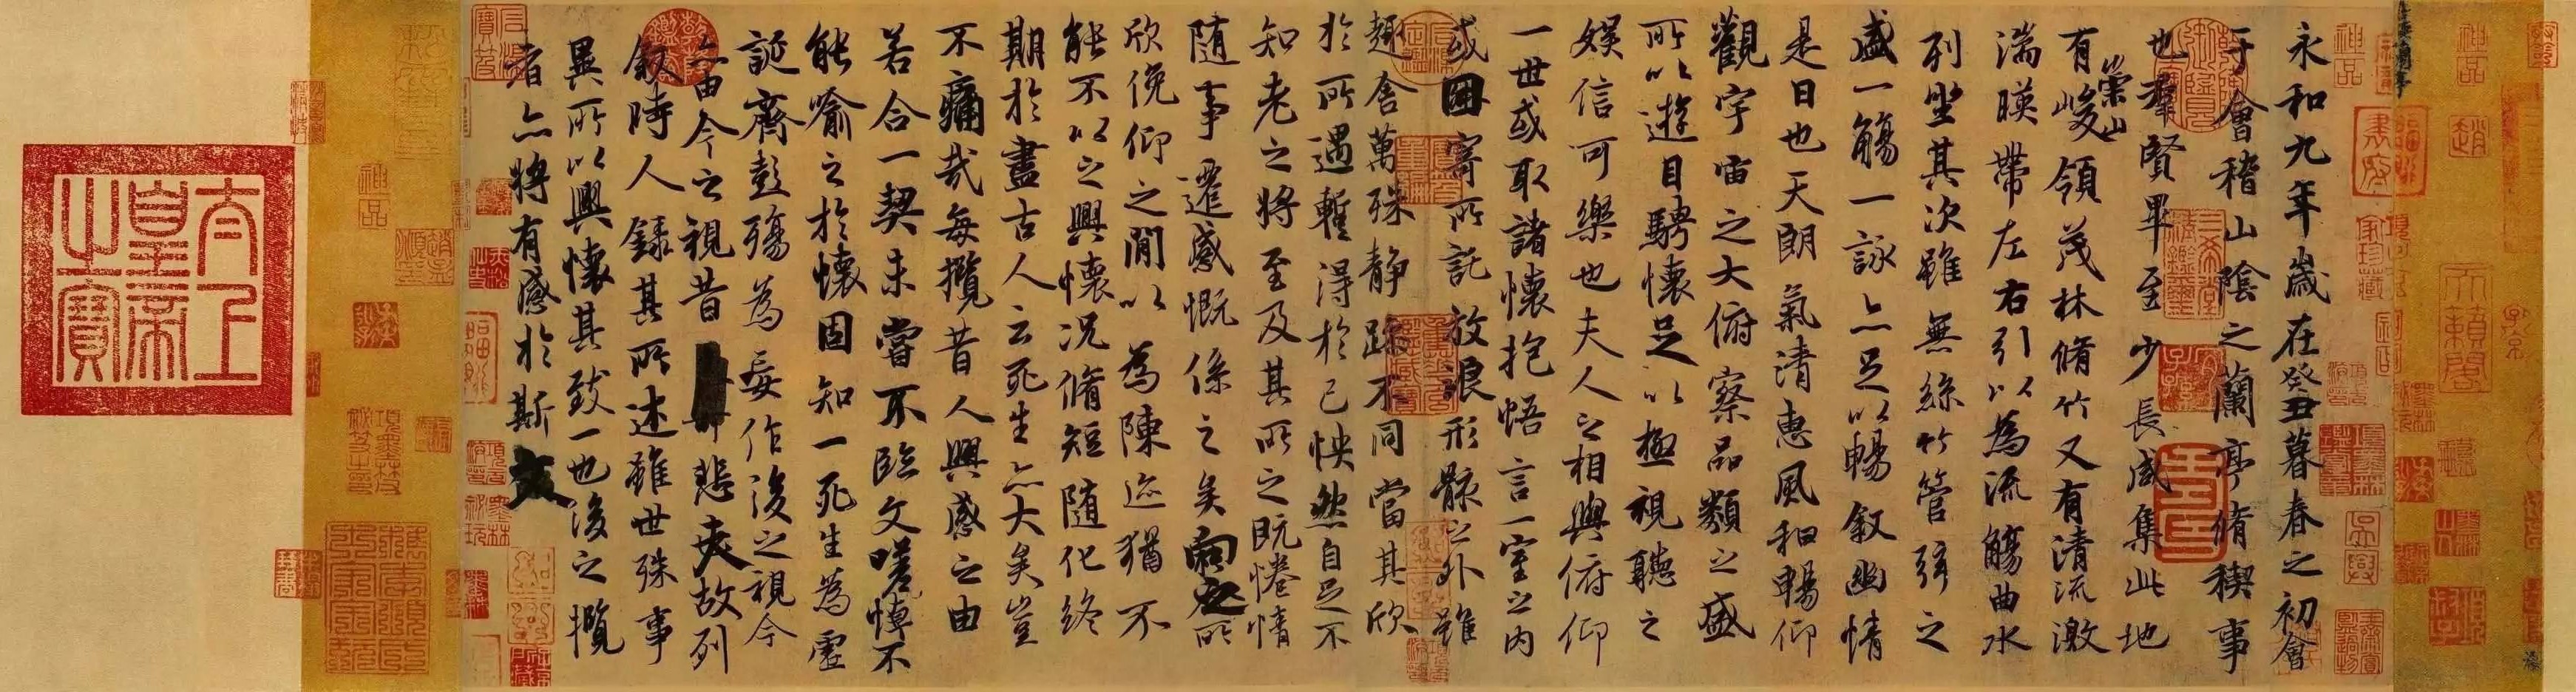 永和九年歲在癸丑暮春之初會
于會稽山陰之蘭亭脩稧事
也羣賢畢至少長咸集此地
有崇山峻領茂林脩竹又有清流激
湍暎帶左右引以為流觴曲水
列坐其次雖無絲竹管弦之
盛一觴一詠亦足以暢敘幽情
是日也天朗氣清惠風和暢仰
觀宇宙之大俯察品類之盛
所以遊目騁懷足以極視聽之
娛信可樂也夫人之相與俯仰
一世或取諸懷抱悟言一室之內
或因寄所託放浪形骸之外雖
趣舍萬殊静躁不同當其欣
於所遇蹔得於己怏然自足不
知老之將至及其所之既惓情
隨事遷感慨係之矣向之所
欣俛仰之閒以為陳迹猶不
能不以之興懷況脩短隨化終
期於盡古人云死生亦大矣豈
不痛哉每攬昔人興感之由
若合一契未嘗不臨文嗟悼不
能喻之於懷固知一死生為虛
誕齊彭殤為妄作後之視今
亦由今之視昔悲夫故列
敘時人錄其所述雖世殊事
異所以興懷其致一也後之攬
者亦將有感於斯文
太上皇帝之寶